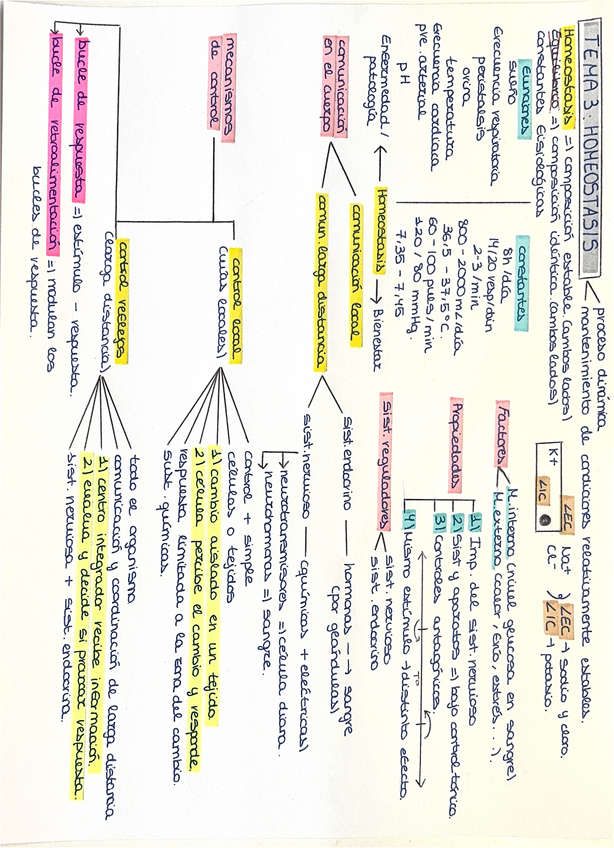 TEMA 3: HOMEOSTASIS
proceso dinámico
mantenimiento de condiciones relativamente estables.
Homeostasis => composición estable (ambos lados)
Equilibrio => composición idéntica (ambos lados)
Constantes fisiológicas
Funciones
sueño
frecuencia respiratoria
peristalsis
orina
temperatura
frecuencia cardíaca
pre. arterial
pH
constantes
8h/día
14/20 resp/min
2-3/min
800-2000mL/día
36,5 - 37,5°C
60-100 puls/min
120/80 mmHg.
7,35 - 7,45
K+
LIC
LEC
Na+
Cl-
LEC → sodio y cloro.
LIC → potasio.
Factores
M. interno (nivel glucosa en sangre)
M. externo (calor, frío, estrés...)
Propiedades
1) Imp. del sist. nervioso
2) Sist y aparatos => bajo control tónico.
3) Controles antagónicos.
4) Mismo estímulo → distinto efecto.
Tº
Sist. reguladores
sist. nervioso
sist. endocrino
Enfermedad/
patología
← Homeostasis → Bienestar
comunicación
en el cuerpo
comunicación local
comun. larga distancia
sist. endocrino — hormonas --> sangre
(por glándulas)
sist. nervioso — (químicas + eléctricas)
neurotransmisores => célula diana.
neurohormonas => sangre.
mecanismos
de control
control local
(vías locales)
control + simple
células o tejidos
1) cambio aislado en un tejido
2) célula percibe el cambio y responde.
respuesta limitada a la zona del cambio.
sust. químicas.
control reflejos
(larga distancia)
todo el organismo
comunicación y coordinación de larga distancia
1) centro integrador recibe información.
2) evalúa y decide si prarrar respuesta.
sist. nerviosa + sist. endocrina.
bucle de respuesta => estímulo - respuesta.
bucle de retroalimentación => modulan los
bucles de respuesta.